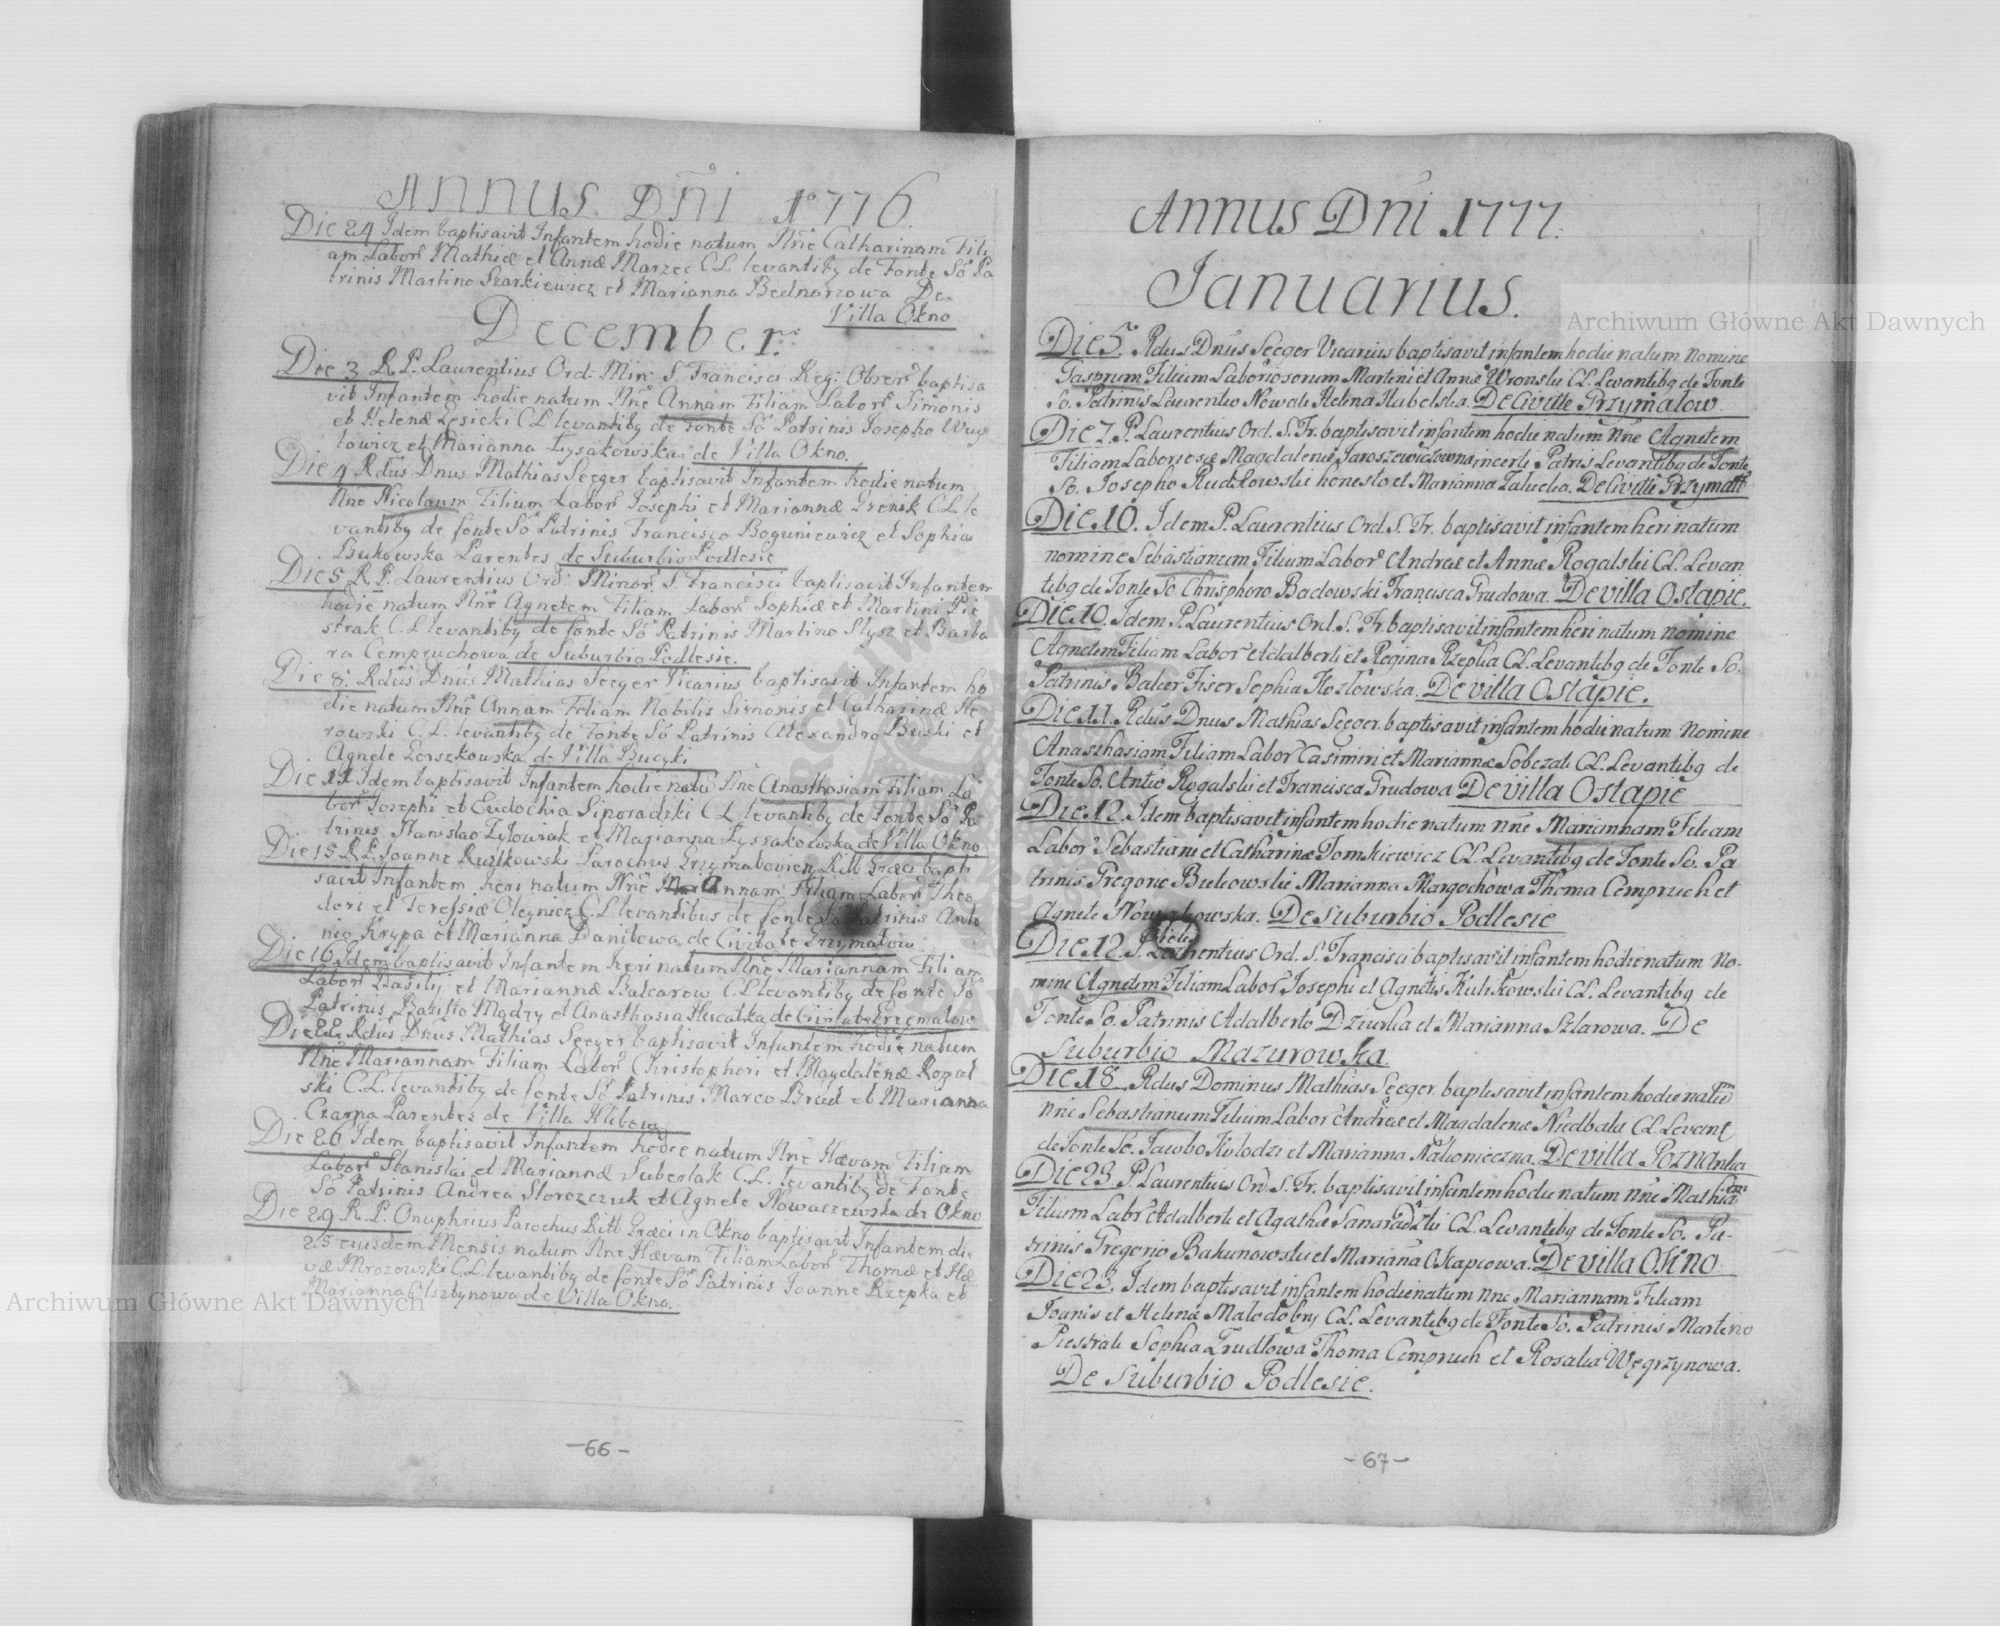 Annus Dñi 1776.
Die 24 Idem baptisavit Infantem hodie natum Nñe Catharinam Fili
am Labor. Mathiæ et Annæ Marzec C.L levantibq de Fonte So Pa
trinis Martino Szarkiewicz et Marianna Bednarzowa De
Villa Okno
December.
Die 3 R.P. Laurentius Ord: Min: S. Francisci Reg: Obser. baptisa
vit Infantem hodie natum Nñe Annam Filiam Labor. Simonis
et Helenæ Lesicki C.L levantibq de Fonte So Patrinis Josepho
et Marianna Łysakowska de Villa Okno.
Die 4 Rdus Dnus Mathias Seeger baptisavit Infantem hodie natum
Nñe Nicolaum Filium Labor. Josephi et Mariannæ C.L le
vantibq de fonte So Patrinis Francisco Boguniewicz et Sophia
Parentes de Suburbio Podlesie
Die 5 R.P. Laurentius Ord: Minor. S. Francisci baptisavit Infantem
hodie natum Nñe Agnetem Filiam Labor. Sophiæ et Martini Pie
strak C.L levantibq de fonte So Patrinis Martino Slysz et Barba
ra Cempruchowa de Suburbio Podlesie.
Die 8. Rdus Dnus Mathias Seeger Vicarius baptisavit Infantem ho
die natum Nñe Annam Filiam Nobilis Simonis et Catharinæ
C.L. levantibq de Fonte So Patrinis Alexandro et
Agnete de Villa Bucyki
Die 11 Idem baptisavit Infantem hodie natũ Nñe Anasthasiam Filiam La
bor. Josephi et Eudochia Siporadzki C L levantibq de Fonte So Pa
trinis Stanislao et Marianna Łyssakowska de Villa Okno
Die 15 R.P. Joanne Parochus Ritt Græci bapti
savit Infantem heri natum Nñe Annam Filiam Labor. Theo
dori et Teressiæ C.L levantibus de fonte So Patrinis Anto
nio Krypa et Marianna Danilowa de Civitate Grzymałow
Die 16 Idem baptisavit Infantem heri natum Nñe Mariannam Filiam
Labor. Basilij et Mariannæ C.L levantibq de fonte So
Patrinis Basilio Mądzy et Anasthasia de Civitate Grzymałow
Die 22. Rdus Dnus Mathias Seeger baptisavit Infantem hodie natum
Nñe Mariannam Filiam Labor. Christophori et Magdalenæ
ski C.L. levantibq de fonte So Patrinis Marco et Marianna
Czarna Parentes de Villa
Die 26 Idem baptisavit Infantem hodie natum Nñe Hævam Filiam
Labor. Stanislai et Mariannæ Suberlak C.L. levantibq de Fonte
So Patrinis Andrea Storozczuk et Agnete de Okno
Die 29 R.P. Onuphrius Parochus Ritt Græci in Okno baptisavit Infantem die
25 eiusdem Mensis natum Nñe Hævam Filiam Labor. Thomæ et Hæ
væ Mrozowski C.L levantibq de fonte So Patrinis Joanne Rzepka et
Marianna de Villa Okno.
-66-
Annus Dñi 1777.
Ianuarius.
Die 5. Rdus Dnus Seeger Vicarius baptisavit infantem hodie natum nomine
Gasprum Filium Laboriosorum Martini et Annæ Wronski CL. Levantibq de Fonte
So. Patrinis Laurentio Nowak Helena De Civitte Grzymałow.
Die 7. P. Laurentius Ord. S. Fr. baptisavit infantem hodie natum Nñe Agnetem
Filiam Laboriosæ Magdalenæ Jaroszewiczowna incerti Patris Levantibq de Fonte
So. Josepho Rudkowski honesto et Marianna De Civitte Grzymałł
Die 10. Idem P. Laurentius Ord. S. Fr. baptisavit infantem heri natum
nomine Sebastianum Filium Labor. Andreæ et Annæ Rogalski CL. Levan
tibq de Fonte So. Chrisphoro Badowski Francisca Grudowa. De villa Ostapie.
Die 10. Idem P. Laurentius Ord. S. Fr. baptisavit infantem heri natum nomine
Agnetem Filiam Labor. Adalberti et Regina Rzepka CL. Levantibq de Fonte So.
Patrinis Fiser Sophia Kozlowska. De villa Ostapie.
Die 11. Rdus Dnus Mathias Seeger baptisavit infantem hodie natum Nomine
Anasthasiam Filiam Labor. Casimiri et Mariannæ Sobczak CL. Levantibq de
Fonte So. Antio Rogalski et Francisca Grudowa De villa Ostapie
Die 12. Idem baptisavit infantem hodie natum Nñe Mariannam Filiam
Labor. Sebastiani et Catharinæ Tomkiewicz CL. Levantibq de Fonte So. Pa
trinis Gregorio Marianna Thoma Cempruch et
Agnete Nowakowska. De Suburbio Podlesie
Die 12. P. Laurentius Ord. S. Francisci baptisavit infantem hodie natum No-
mine Agnetem Filiam Labor. Josephi et Agnetis Kulikowski CL. Levantibq de
Fonte So. Patrinis Adalberto Dziurka et Marianna Szlarowa. De
Suburbio Mazurowka.
Die 18. Rdus Dominus Mathias Seeger baptisavit infantem hodie natũ
nñe Sebastianum Filium Labor. Andreæ et Magdalenæ Niedbala CL. Levant
de Fonte So. Jacobo Kolodzi et Marianna De villa Poznanka
Die 23. P. Laurentius Ord. S. Fr. baptisavit infantem hodie natum nñe Mathiam
Filium Labr. Adalberti et Agathæ CL. Levantibq de Fonte So. Pa-
trinis Gregorio Bakunowski et Mariana Ostapiowa. De villa Okno
Die 23. Idem baptisavit infantem hodie natum nñe Mariannam Filiam
Joanis et Helenæ Malodobry CL. Levantibq de Fonte So. Patrinis Martino
Piestrak Sophia Grudlowa Thoma Cempruch et Rosalia Węgrzynowa.
De Suburbio Podlesie.
-67-
Archiwum Główne Akt Dawnych
Archiwum Główne Akt Dawnych